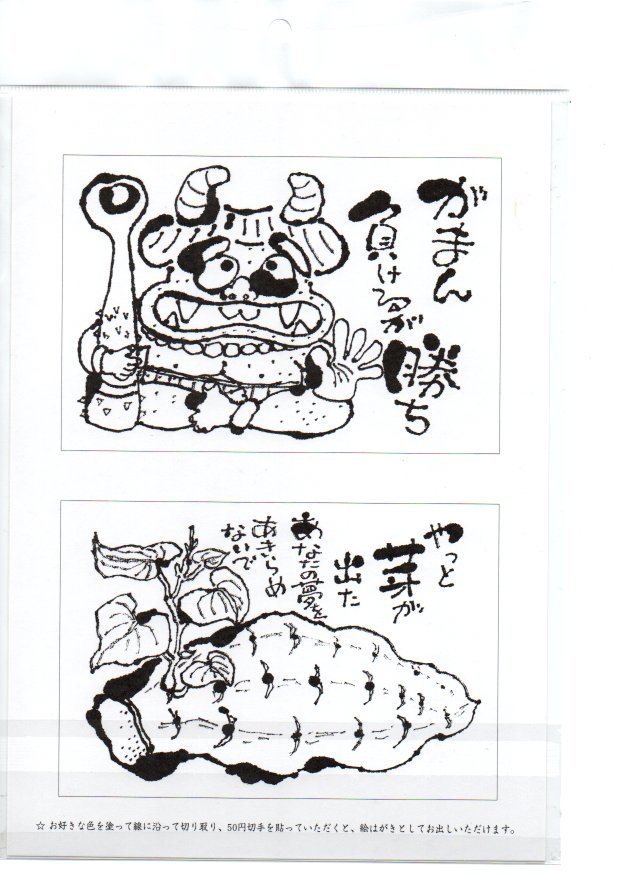 がまん
負けるが
勝ち
やっと
芽が
出た
あなたの夢を
あきらめ
ないで
☆ お好きな色を塗って線に沿って切り取り、50円切手を貼っていただくと、絵はがきとしてお出しいただけます。